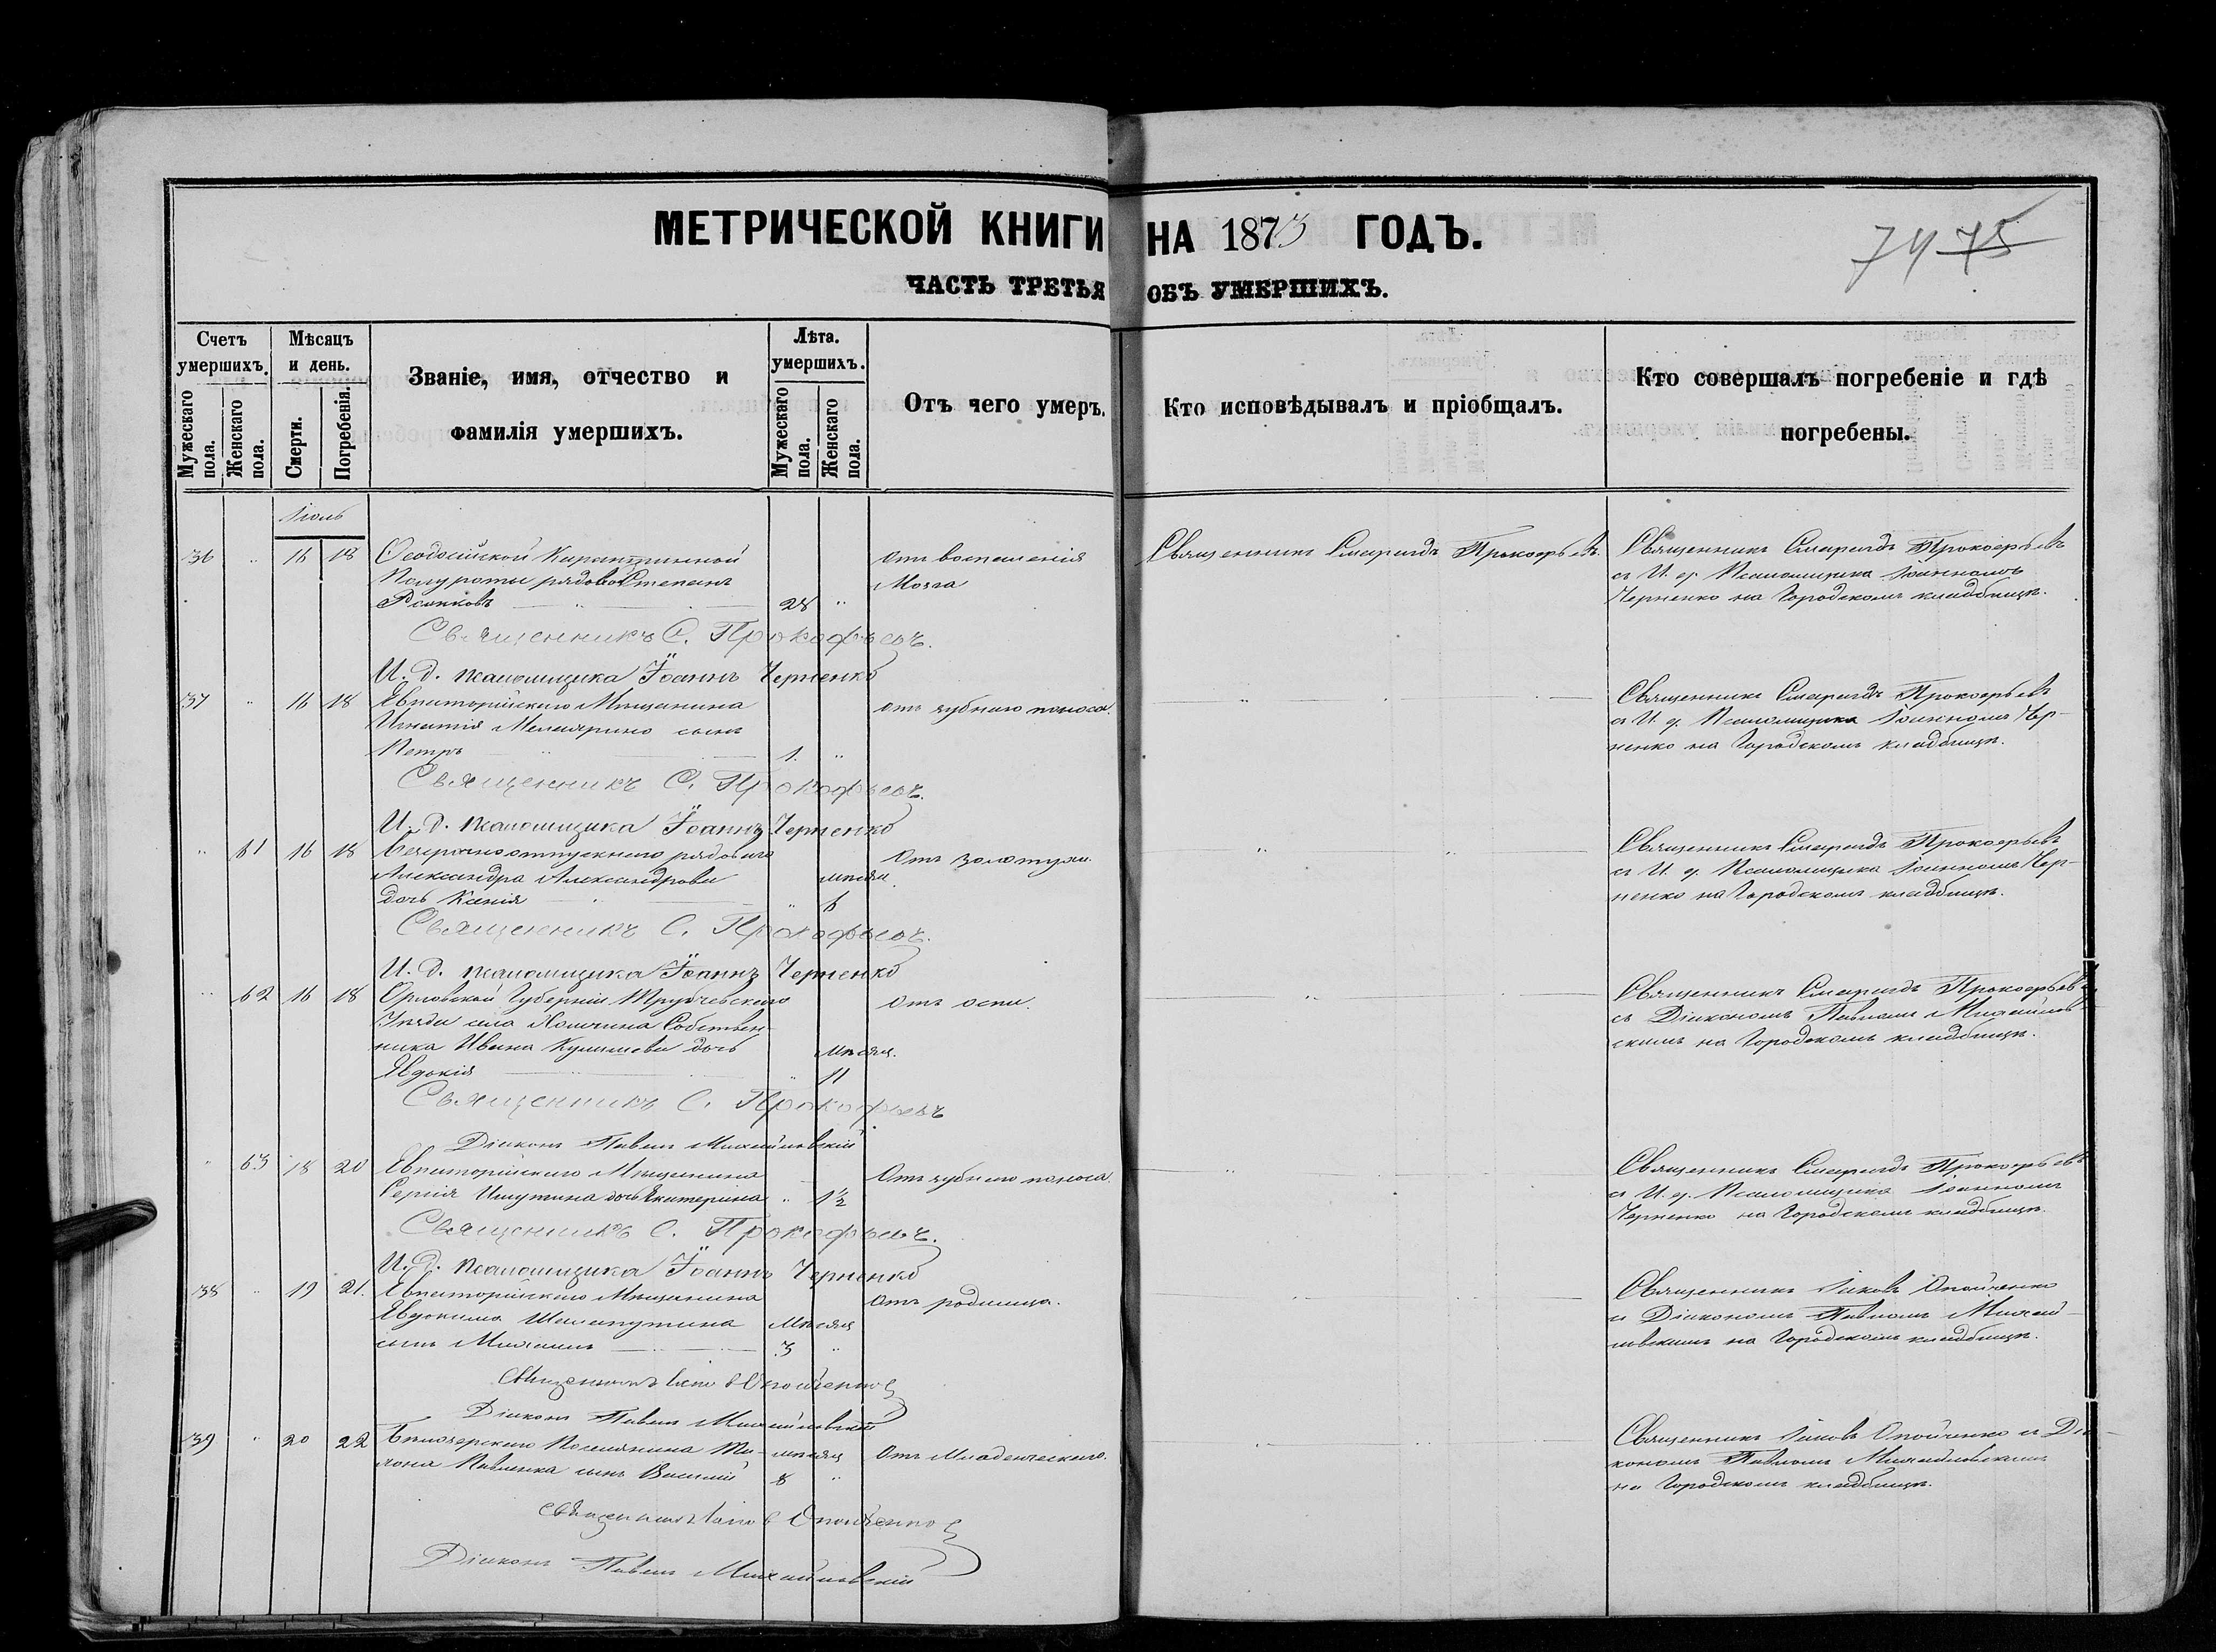 МЕТРИЧЕСКОЙ КНИГИ НА 1873 ГОДЪ.
74 75
ЧАСТЬ ТРЕТЬЯ ОБЪ УМЕРШИХЪ.
Счетъ умершихъ.
Мужескаго пола.
Женскаго пола.
Мѣсяцъ и день.
Смерти.
Погребенія.
Званіе, имя, отчество и фамилія умершихъ.
Лѣта. умершихъ.
Мужескаго пола.
Женскаго пола.
Отъ чего умеръ.
Кто исповѣдывалъ и пріобщалъ.
Кто совершалъ погребеніе и гдѣ погребены.
Іюль
36 " 16 18 Ѳеодосійской Карантинной Отъ воспаленія Священникъ Смарагдъ Прокофьевъ. Священникъ Смарагдъ Прокофьевъ
Полуроты рядовой Степанъ Мозга съ И. д. Псаломщика Іоанномъ
28 " Черненко на Городскомъ кладбищѣ.
Священникъ С. Прокофьевъ.
И. д. псаломщика Іоаннъ Черненко
37 " 16 18 Евпаторійскаго Мѣщанина отъ зубнаго поноса. " Священникъ Смарагдъ Прокофьевъ
Игнатія сынъ съ И. д. Псаломщика Іоанномъ Чер-
Петръ 1. " ненко на Городскомъ кладбищѣ.
Священникъ С. Прокофьевъ.
И. д. псаломщика Іоаннъ Черненко
" 61 16 18 Безсрочноотпускнаго рядоваго Отъ золотухи. " " Священникъ Смарагдъ Прокофьевъ
Александра Александрова мѣсяц. съ И. д. Псаломщика Іоанномъ Чер-
дочь Ксенія " 6 ненко на Городскомъ кладбищѣ.
Священникъ С. Прокофьевъ.
И. д. псаломщика Іоаннъ Черненко
" 62 16 18 Орловской Губерніи Трубчевскаго Отъ оспы. " Священникъ Смарагдъ Прокофьевъ
Уѣзда села Собствен- съ Діакономъ Павломъ Михайлов-
ника Ивана дочь мѣсяц. скимъ на Городскомъ кладбищѣ.
Явдокія " 11
Священникъ С. Прокофьевъ
Діаконъ Павелъ Михайловскій
" 63 18 20 Евпаторійскаго Мѣщанина Отъ зубнаго поноса. " Священникъ Смарагдъ Прокофьевъ
Сергія дочь Екатерина " 1½ съ И. д. Псаломщика Іоанномъ
Черненко на Городскомъ кладбищѣ.
Священникъ С. Прокофьевъ.
И. д. псаломщика Іоаннъ Черненко
38 " 19 21. Евпаторійскаго Мѣщанина Отъ родимца. Священникъ Іаковъ Опойченко
Евдокима Шелапутина Мѣсяц съ Діакономъ Павломъ Михай-
сынъ Михаилъ 3 " ловскимъ на Городскомъ кладбищѣ.
Священникъ Іаковъ Опойченко
Діаконъ Павелъ Михайловскій
39 " 20 22 Поселянина мѣсяц Отъ Младенческаго. Священникъ Іаковъ Опойченко съ Діа-
Павленка сынъ Василій 8 " кономъ Павломъ Михайловскимъ
на Городскомъ кладбищѣ.
Священникъ Іаковъ Опойченко
Діаконъ Павелъ Михайловскій